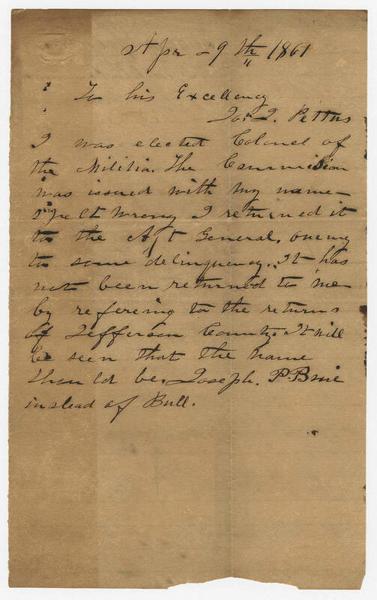 Apr 29th 1861
To his Excellency
Jno. J. Pettus
I was elected Colonel of
the Militia. The Commission
was issued with my name
spelt wrong I returned it
to the Ajt General, owing
to some delinquency. It has
not been returned to me
by refering to the returns
of Jefferson County. It will
be seen that the name
should be Joseph. P. Brie
instead of Bull.